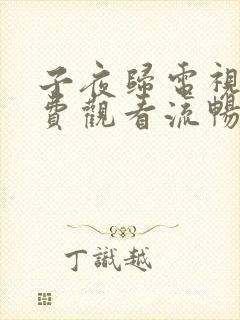 子夜歸電視
費觀看流暢
丁識越